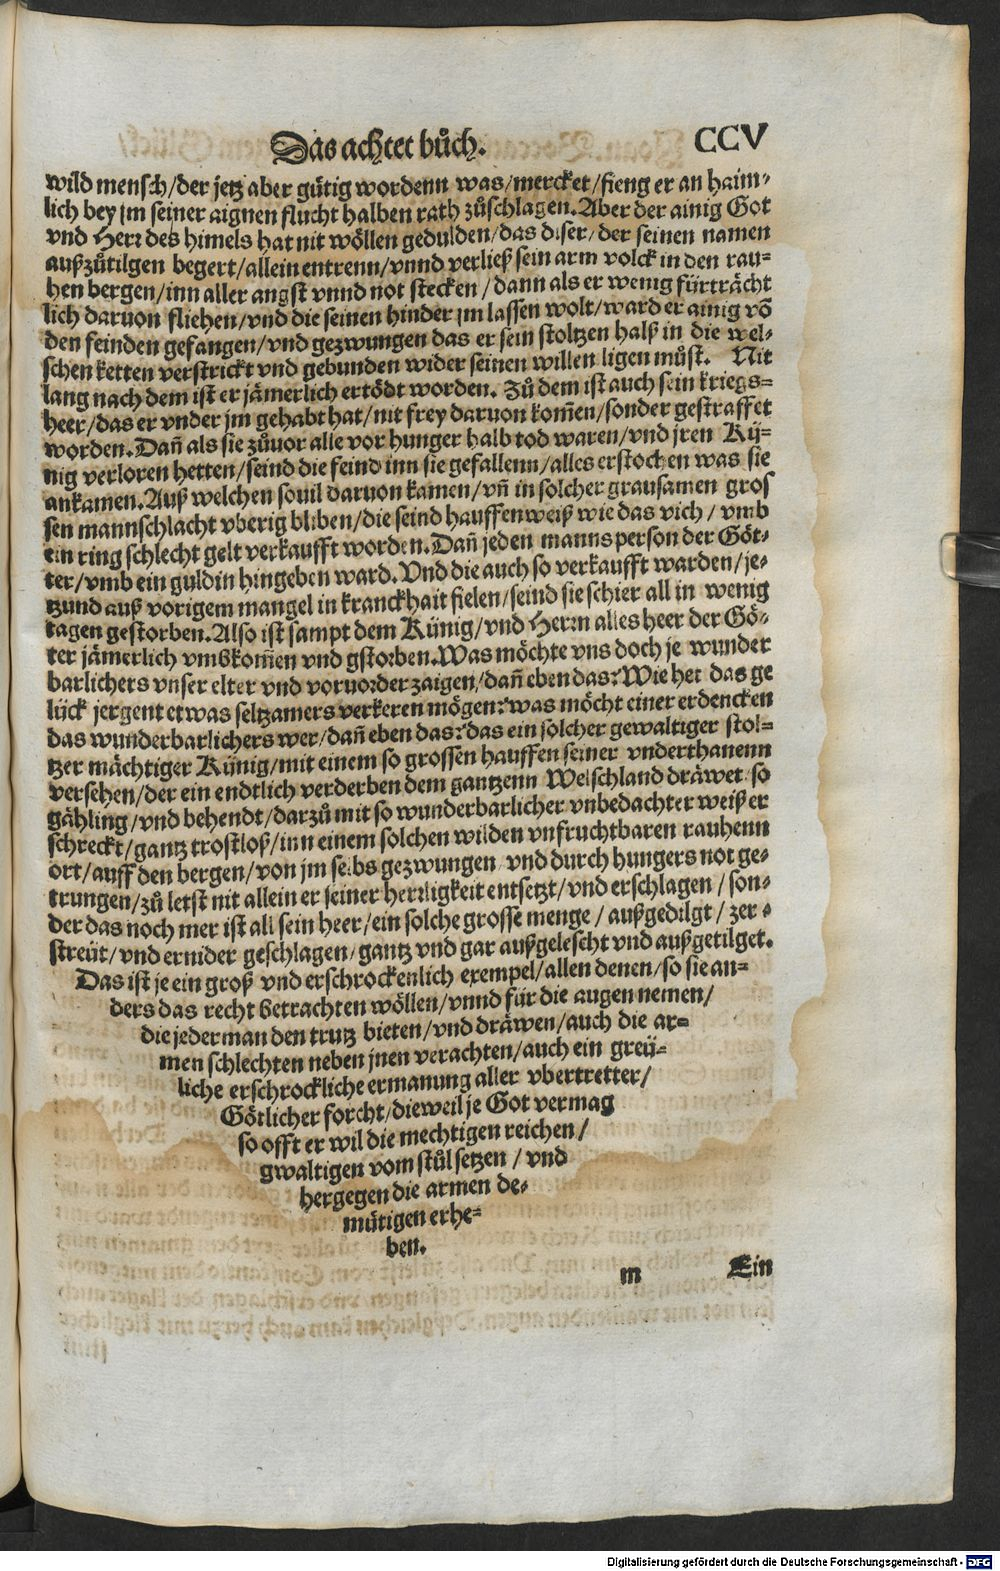 Das achtet bůch. CCV
wild mensch/der jetz aber gütig wordenn was/mercket/fieng er an haim-
lich bey jm seiner aignen flucht halben rath zůschlagen. Aber der ainig Got
vnd Herr des himels hat nit wöllen gedulden/das diser/der seinen namen
außzůtilgen begert/allein entrenn/vnnd verließ sein arm volck in den rau-
hen bergen/inn aller angst vnnd not stecken/dann als er wenig fürträcht
lich daruon fliehen/vnd die seinen hinder jm lassen wolt/ward er ainig võ
den feinden gefangen/vnd gezwungen das er sein stoltzen halß in die wel-
schen ketten verstrickt vnd gebunden wider seinen willen ligen můst. Nit
lang nach dem ist er jämerlich ertödt worden. Zů dem ist auch sein kriegs-
heer/das er vnder jm gehabt hat/nit frey daruon kom̃en/sonder gestraffet
worden. Dañ als sie zůuor alle vor hunger halb tod waren/vnd jren Kü-
nig verloren hetten/seind die feind inn sie gefallenn/alles erstochen was sie
ankamen. Auß welchen souil daruon kamen/vñ in solcher grausamen gros
sen mannschlacht vberig bliben/die seind hauffenweiß wie das vich/vmb
ein ring schlecht gelt verkaufft worden. Dañ jeden manns person der Göt-
ter/vmb ein guldin hingeben ward. Vnd die auch so verkaufft warden/je-
tzund auß vorigem mangel in kranckhait fielen/seind sie schier all in wenig
tagen gestorben. Also ist sampt dem Künig/vnd Herrn alles heer der Gö-
ter jämerlich vmbkom̃en vnd gstorben. Was möchte vns doch je wunder
barlichers vnser elter vnd voruorder zaigen/dañ eben das? Wie het das ge
lück jergent etwas seltzamers verkeren mögen? was möcht einer erdencken
das wunderbarlichers wer/dañ eben das? das ein solcher gewaltiger stol-
tzer mächtiger Künig/mit einem so grossen hauffen seiner vnderthanenn
versehen/der ein endtlich verderben dem gantzenn Welschland dräwet/so
gähling/vnd behendt/darzů mit so wunderbarlicher vnbedachter weiß er
schreckt/gantz trostloß/inn einem solchen wilden vnfruchtbaren rauhenn
ort/auff den bergen/von jm selbs gezwungen/vnd durch hungers not ge-
trungen/zů letst nit allein er seiner herrligkeit entsetzt/vnd erschlagen/son-
der das noch mer ist all sein heer/ein solche grosse menge/außgedilgt/zer-
streüt/vnd ernider geschlagen/gantz vnd gar außgelescht vnd außgetilget.
Das ist je ein groß vnd erschrockenlich exempel/allen denen/so sie an-
ders das recht betrachten wöllen/vnnd für die augen nemen/
die jederman den trutz bieten/vnd dräwen/auch die ar-
men schlechten neben jnen verachten/auch ein greü-
liche erschrockliche ermanung aller vbertretter/
Götlicher forcht/dieweil je Got vermag
so offt er wil die mechtigen reichen/
gwaltigen vom stůl setzen/vnd
hergegen die armen de-
mütigen erhe-
ben.
m Ein
Digitalisierung gefördert durch die Deutsche Forschungsgemeinschaft - DFG